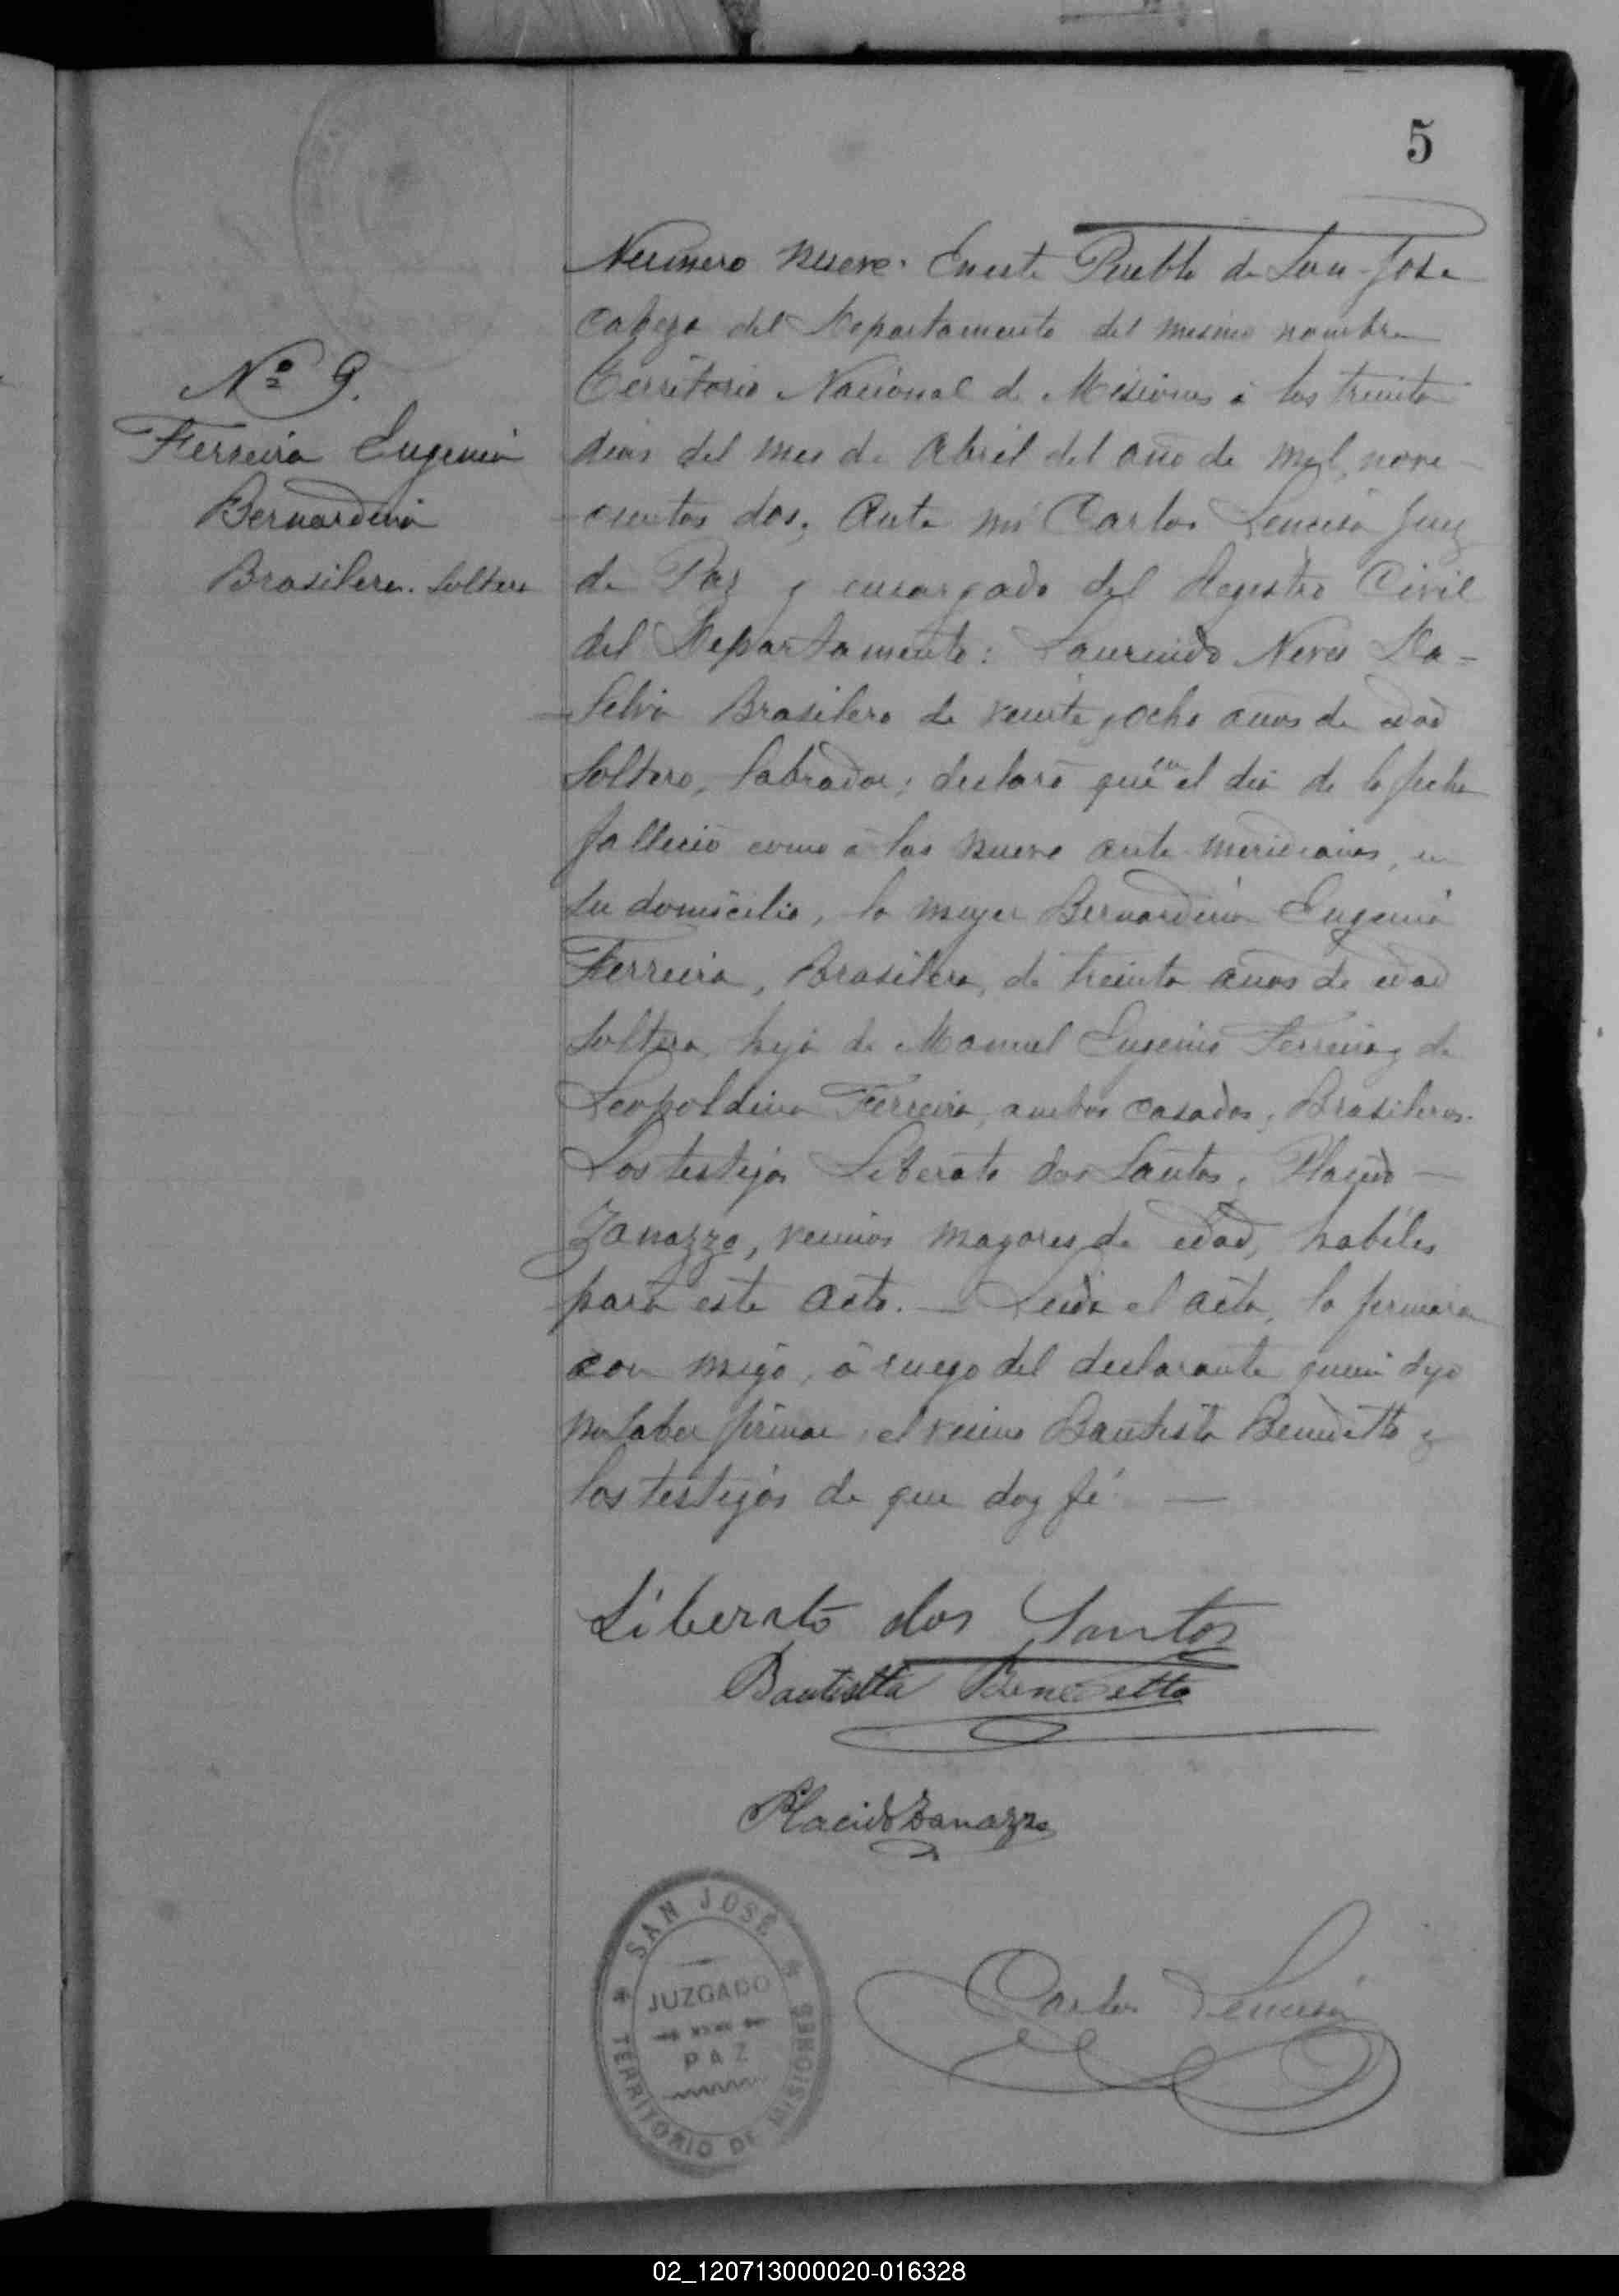 5
Numero nueve. En este Pueblo de San José
Cabeza del Departamento del mismo nombre
Territorio Nacional de Misiones á los treinta
dias del mes de Abril del año de mil nove-
cientos dos, Ante mi Carlos Lencisa Juez
de Paz y encargado del Registro Civil
del Departamento: Laurindo Neves Da-
Silva Brasilero de veinte y ocho anos de edad
Soltero, labrador; declaró que en el dia de la fecha
falleció como á las nueve ante meridianas, en
su domicilio, la mujer Bernardina Eugenia
Ferreira, Brasilera, de treinta anos de edad
Soltera, hija de Manuel Eugenio Ferreira y de
Leopoldina Ferreira, ambos casados, Brasileros.
Los testigos Liberato dos Santos y Placido
Zanazzo, vecinos mayores de edad, habiles
para este acto. — Leida el acta, la firmaron
con migo, á ruego del declarante quien dijo
no saber firmar, el vecino Bautista Benedetto y
los testigos de que doy fé —
Nº 9.
Ferreira Eugenia
Bernardina
Brasilera. Soltera
Liberato dos Santos
Bautistta Benedetto
Placido Zanazzo
Carlos Lencisa
SAN JOSÉ
JUZGADO
PAZ
TERRITORIO DE MISIONES
02_120713000020-016328